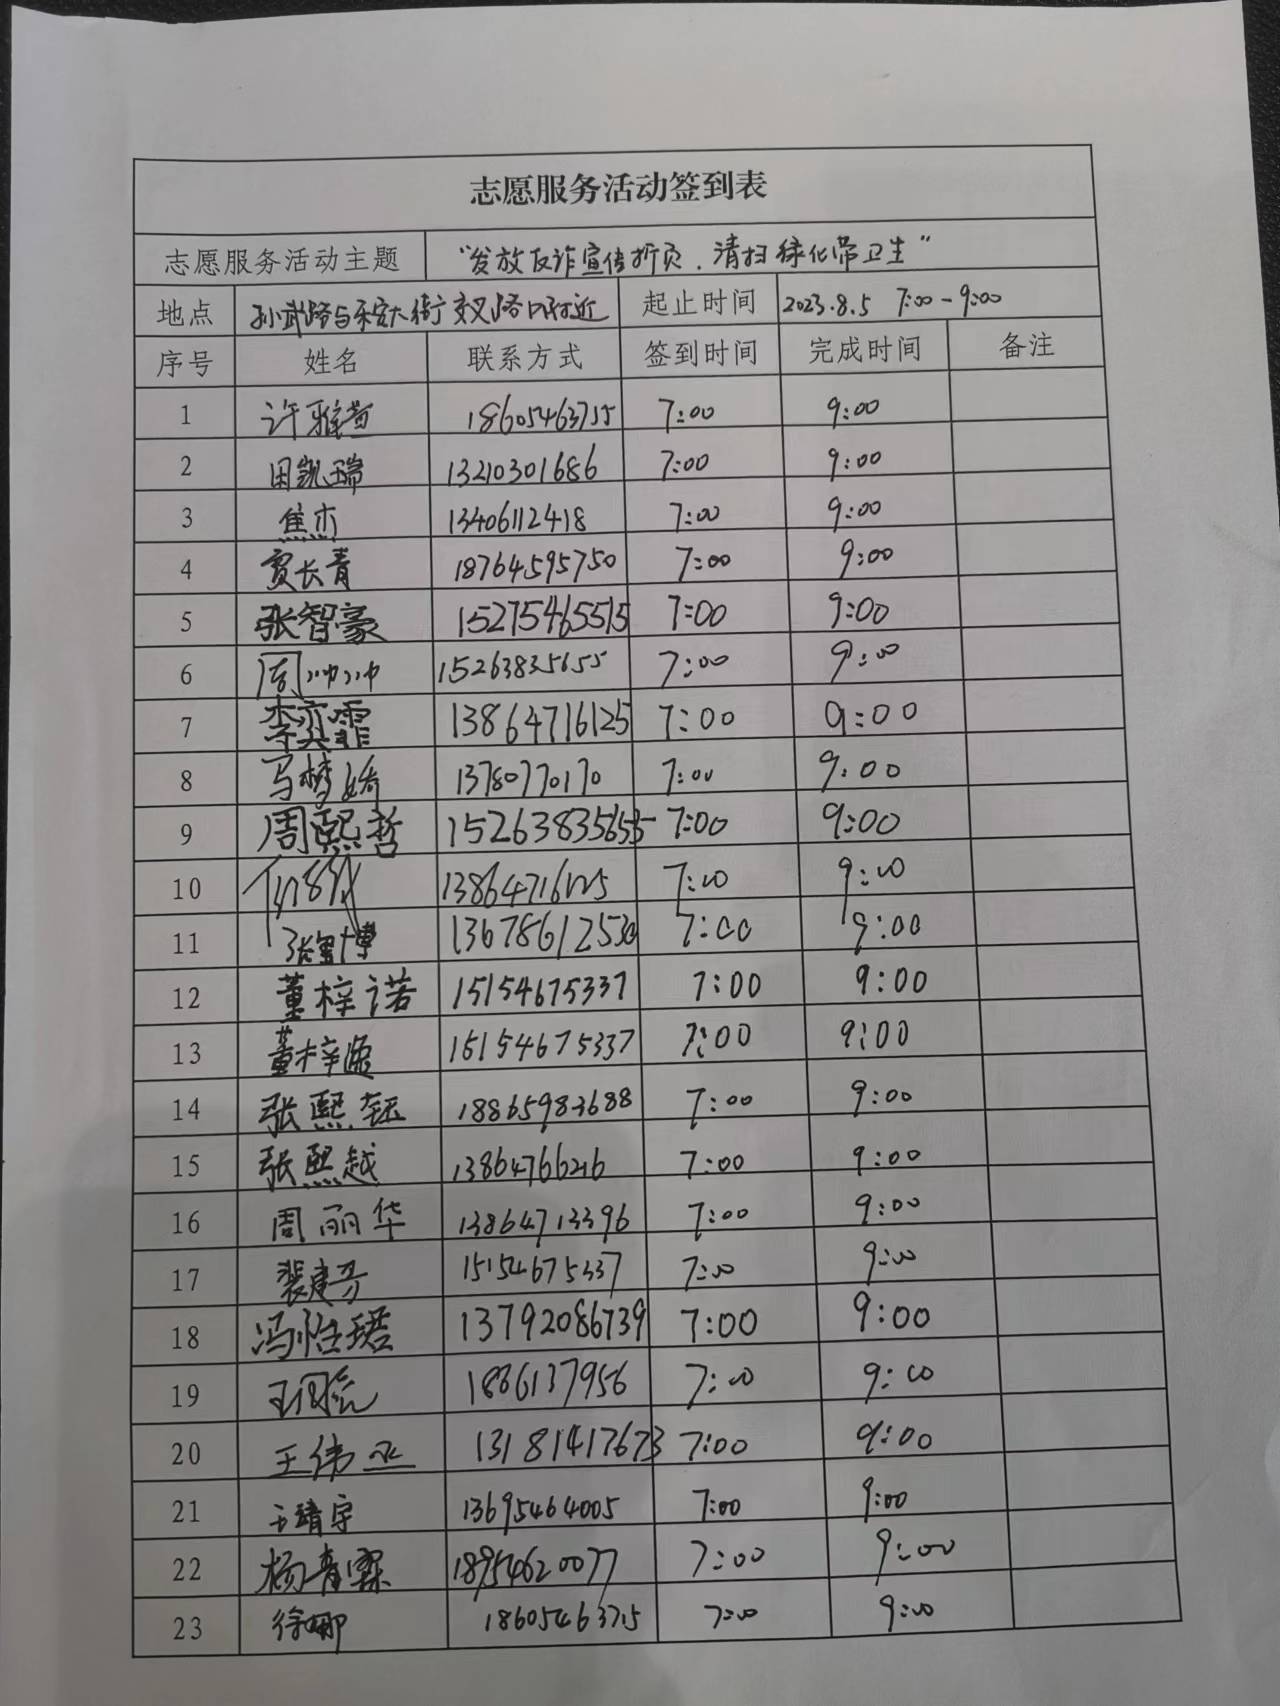 志愿服务活动签到表
志愿服务活动主题 “发放反诈宣传折页、清扫绿化带卫生”
地点 孙武路与乐安大街交叉路口附近 起止时间 2023.8.5 7:00-9:00
序号 姓名 联系方式 签到时间 完成时间 备注
1 许雅萱 18605463755 7:00 9:00
2 田凯瑞 13210301686 7:00 9:00
3 焦杰 13406112418 7:00 9:00
4 贾长青 18764595750 7:00 9:00
5 张智豪 15275465515 7:00 9:00
6 周帅帅 15263835655 7:00 9:00
7 李奕霏 13864716125 7:00 9:00
8 马梦娇 13780770170 7:00 9:00
9 周熙哲 15263835655 7:00 9:00
10 13864716125 7:00 9:00
11 13678612530 7:00 9:00
12 董梓诺 15154675337 7:00 9:00
13 董梓逸 15154675337 7:00 9:00
14 张熙钰 18865983688 7:00 9:00
15 张熙越 13864766216 7:00 9:00
16 周丽华 13864713396 7:00 9:00
17 裴建芬 15154675337 7:00 9:00
18 冯怡珺 13792086739 7:00 9:00
19 1886137956 7:00 9:00
20 王伟丞 13181417673 7:00 9:00
21 王靖宇 13695464005 7:00 9:00
22 杨青霖 18954620077 7:00 9:00
23 徐娜 18605463715 7:00 9:00